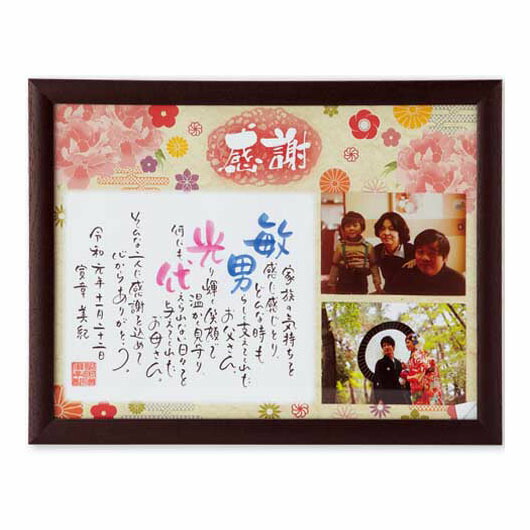 感謝
家族の気持ちを
敏感に感じとり
どんな時も
男らしく支えてくれた
お父さん。
光り輝く笑顔で
温かく見守り
何にも代えられない日々を
与えてくれた
お母さん。
そんな二人に感謝を込めて
心からありがとう。
令和元年十一月二十二日